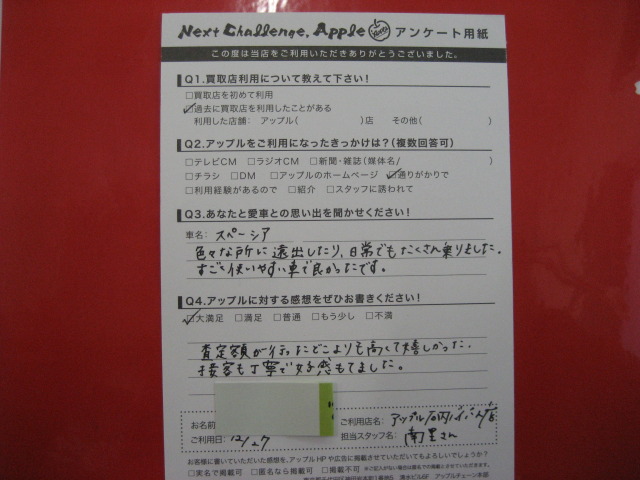 Next Challenge. Apple アンケート用紙
この度は当店をご利用いただきありがとうございました。
Q1.買取店利用について教えて下さい!
□買取店を初めて利用
☑過去に買取店を利用したことがある
利用した店舗: アップル( )店 その他( )
Q2.アップルをご利用になったきっかけは?(複数回答可)
□テレビCM □ラジオCM □新聞・雑誌(媒体名/ )
□チラシ □DM □アップルのホームページ ☑通りがかりで
□利用経験があるので □紹介 □スタッフに誘われて
Q3.あなたと愛車との思い出を聞かせください!
車名: スペーシア
色々な所に遠出したり、日常でもたくさん乗りました。
すごく使いやすい車で良かったです。
Q4.アップルに対する感想をぜひお書きください!
☑大満足 □満足 □普通 □もう少し □不満
査定額が行ったどこよりも高くて嬉しかった。
接客も丁寧で好感もてました。
お名前
ご利用店名: アップル石内バイパス店
ご利用日: 12/27
担当スタッフ名: 南里さん
お客様に書いていただいた感想を、アップルHPや広告に掲載させていただいてもよろしいでしょうか?
□実名で掲載可 □匿名なら掲載可 □掲載不可 ※ご記入がない場合は匿名での掲載とさせていただきます。